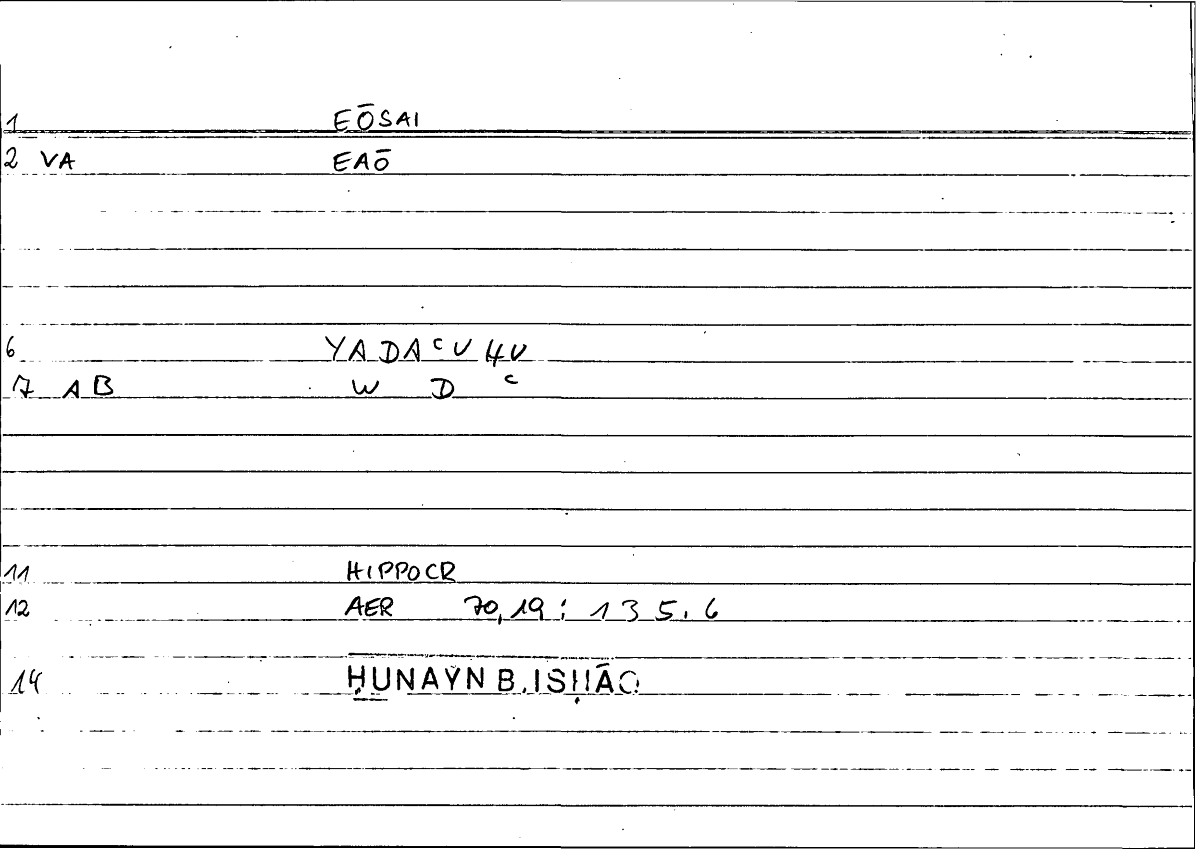 1 EŌSAI
2 VA EAŌ
6 YADAᶜU4U
7 AB W D ᶜ
11 HIPPOCR
12 AER 70,19; 135.6
14 ḤUNAYN B. ISḤĀQ